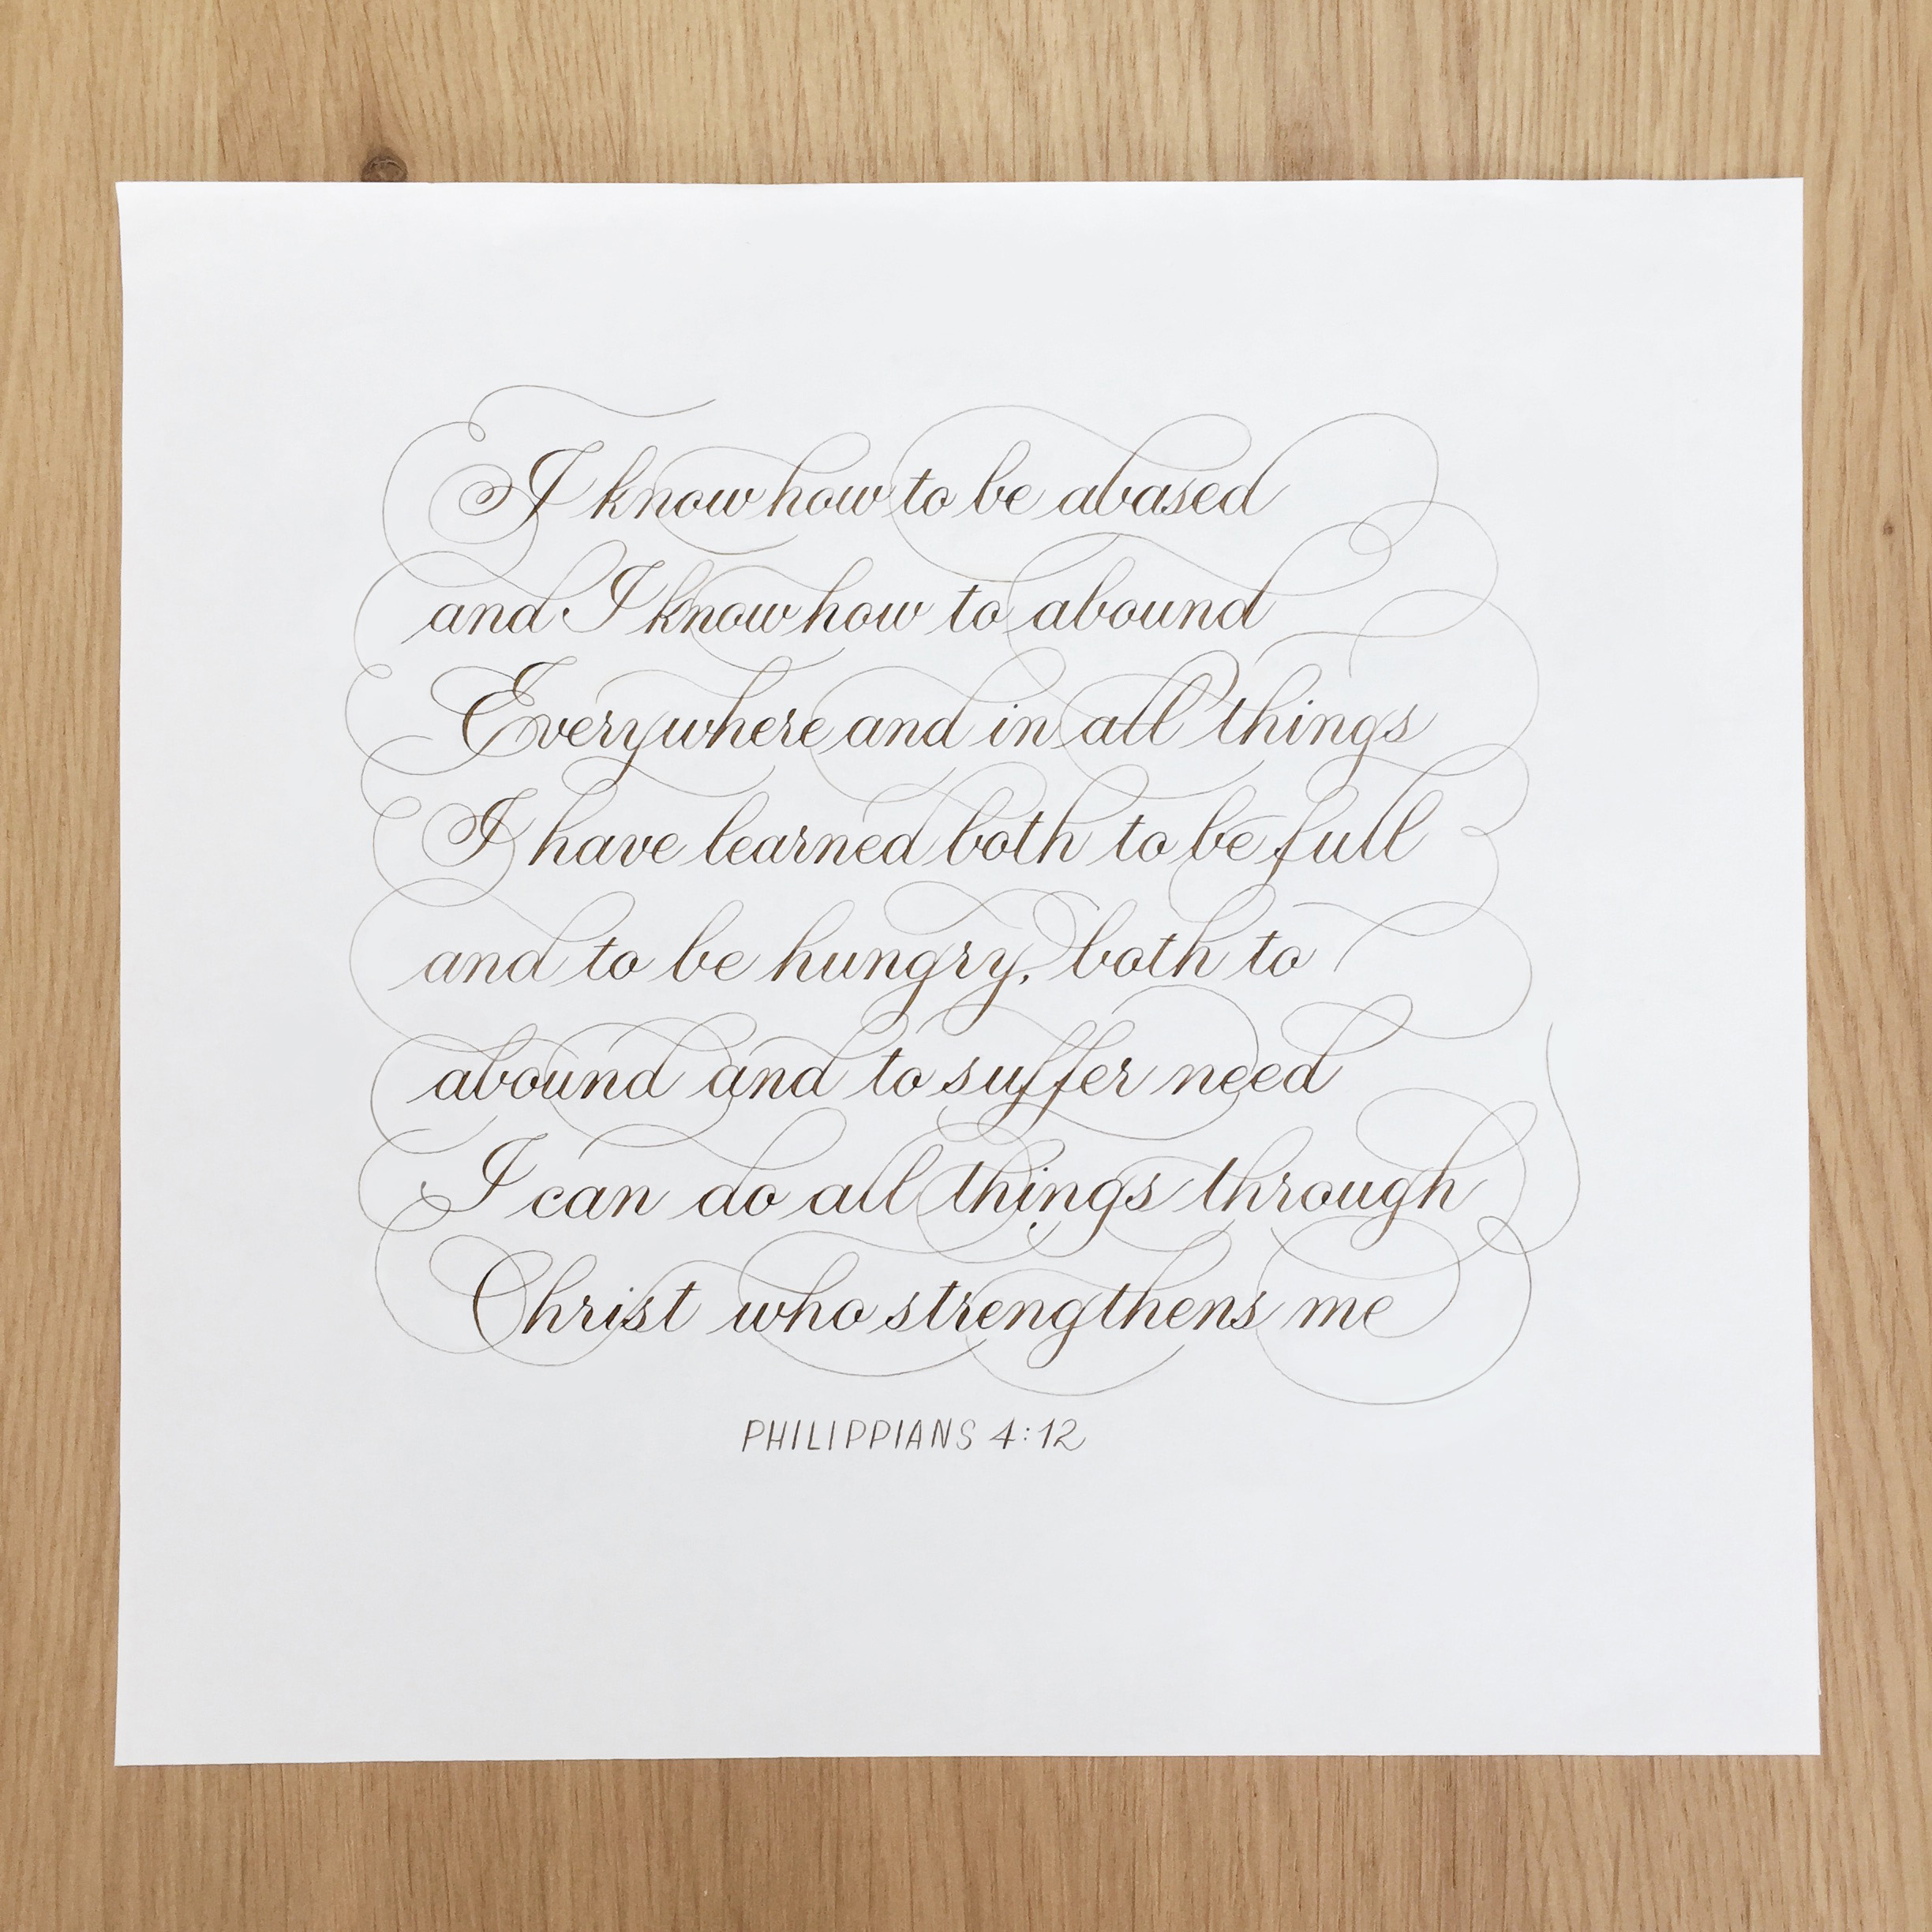 I know how to be abased
and I know how to abound
Everywhere and in all things
I have learned both to be full
and to be hungry, both to
abound and to suffer need
I can do all things through
Christ who strengthens me
PHILIPPIANS 4:12